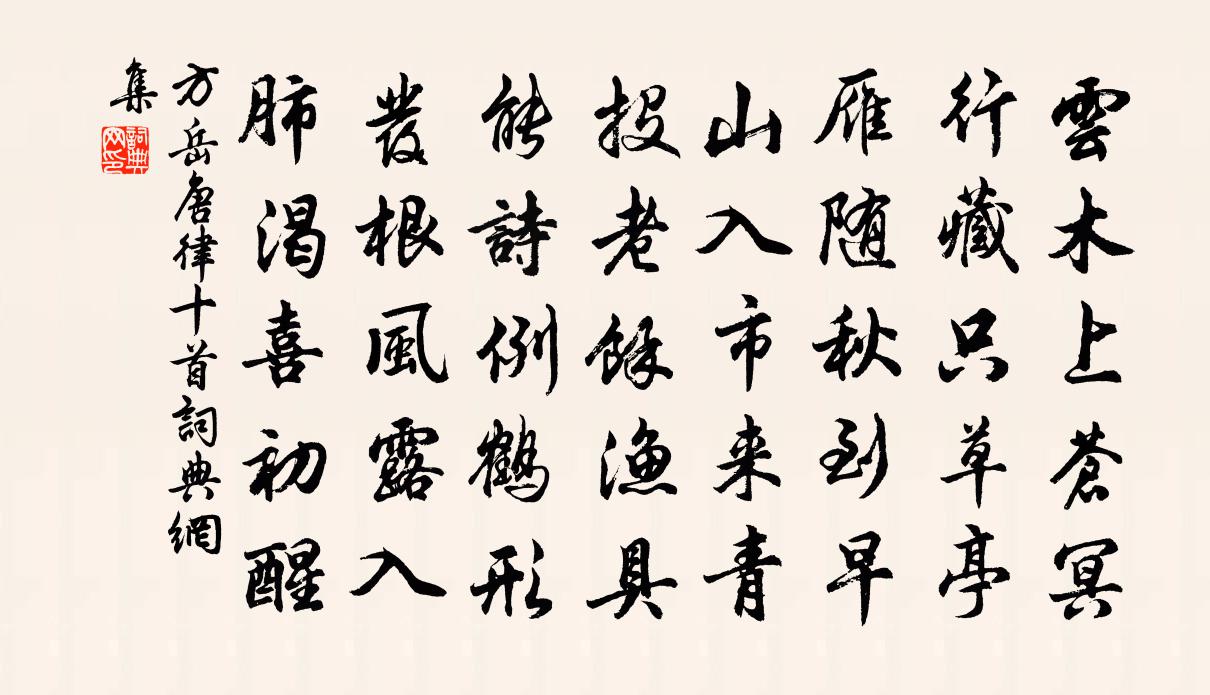 雲木上蒼冥
行藏只草亭
雁随秋到早
山入市来青
投老餘漁具
能詩例鶴形
發根風露入
肺渴喜初醒
方岳唐律十首詞典網
集
詞典網印